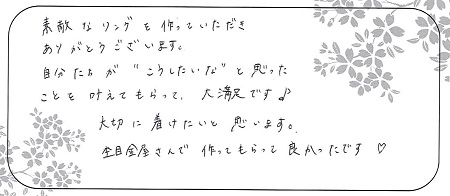 素敵なリングを作っていただき
ありがとうございます。
自分たちが"こうしたいな"と思った
ことを叶えてもらって、大満足です♪
大切に着けたいと思います。
杢目金屋さんで作ってもらって良かったです♡